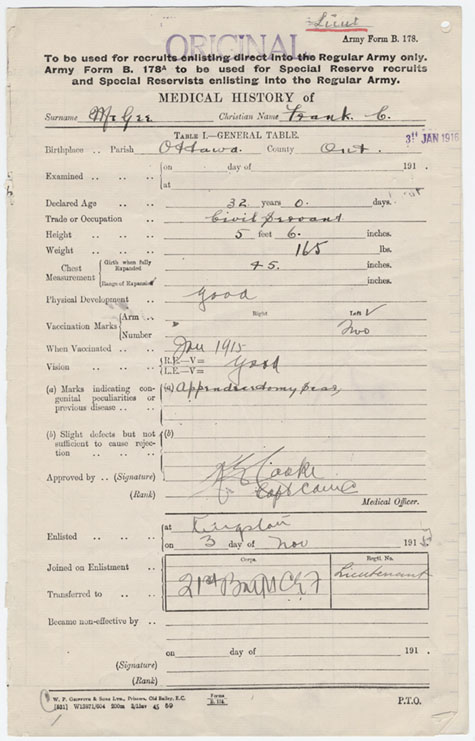 Lieut
ORIGINAL
Army Form B. 178.
To be used for recruits enlisting direct into the Regular Army only.
Army Form B. 178A to be used for Special Reserve recruits
and Special Reservists enlisting into the Regular Army.
MEDICAL HISTORY of
Surname McGee Christian Name Frank C.
TABLE I.—GENERAL TABLE.
31 JAN 1916
Birthplace .. Parish Ottawa. County Ont.
Examined .. .. .. { on day of 191 .
at
Declared Age .. .. 32 years 0. days.
Trade or Occupation .. Civil Servant
Height .. .. .. 5 feet 6. inches.
Weight .. .. .. 165 lbs.
Chest Measurement { Girth when fully Expanded 45. inches.
Range of Expansion inches.
Physical Development .. good
Vaccination Marks { Arm .. Right Left √
Number Two
When Vaccinated .. .. Jan 1915
Vision .. .. .. { R.E.—V= Good
L.E.—V=
(a) Marks indicating con- (a) Appendicectomy scar,
genital peculiarities or
previous disease ..
(b) Slight defects but not (b)
sufficient to cause rejec-
tion .. .. ..
Approved by .. (Signature) Cooke
(Rank) Capt CAMC
Medical Officer.
Enlisted .. .. .. { at Kingston
on 3 day of Nov 1915
Corps. Regtl. No.
Joined on Enlistment .. 21st Battn CEF Lieutenant
Transferred to ..
Became non-effective by ..
on day of 191 .
(Signature)
(Rank)
W. P. GRIFFITH & SONS LTD., Printers, Old Bailey, E.C.
[531] W13871/604 200m 2/15sv 45 59
Forms
B. 178.
P.T.O.